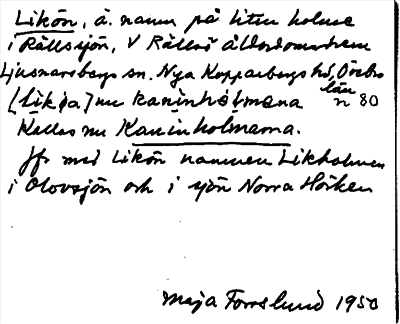 Likön, ä. namn på liten holme
i Rällsjön, V Rällså ålderdomshem
Ljusnarsbergs sn. Nya Kopparbergs hd, Örebro
län
[likøa] nu kaninhólmana n 80
Kallas nu Kaninholmarna.
Jfr med Likön namnen Likholmen
i Olovsjön och i sjön Norra Hörken
Maja Forsslund 1950